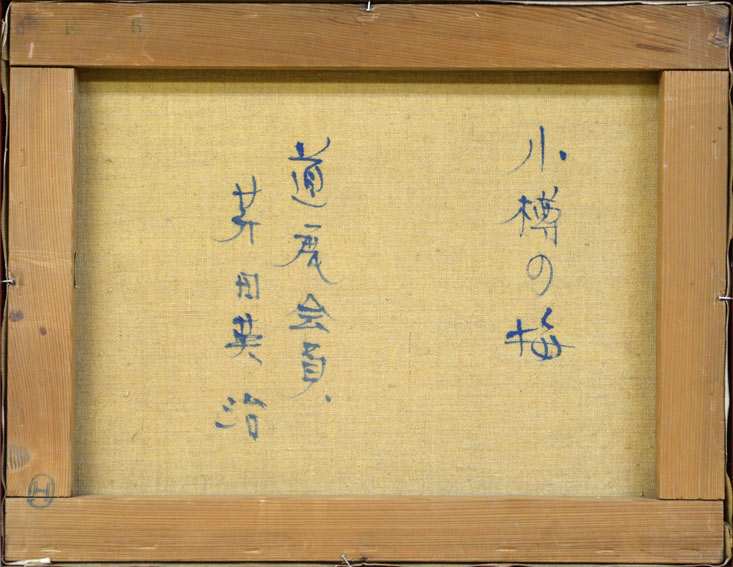 小樽の梅
道展会員、
芹田英治
H